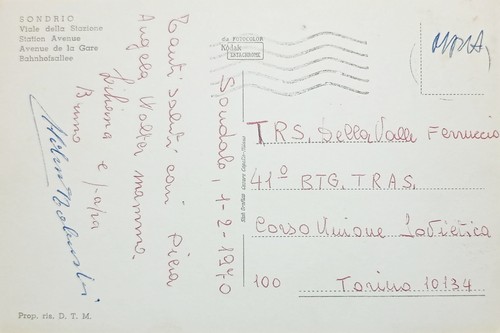 SONDRIO
Viale della Stazione
Station Avenue
Avenue de la Gare
Bahnhofsallee
da FOTOCOLOR
Kodak
EKTACHROME
Sondalo, 1-2-1970
Tanti saluti con Piera
Angela Walter mamma.
Liliana e papa
Bruno
TRS. Della Valle Ferruccio
41º BTG. TRAS.
Corso Unione Sovietica
100
Torino 10134
Prop. ris. D. T. M.